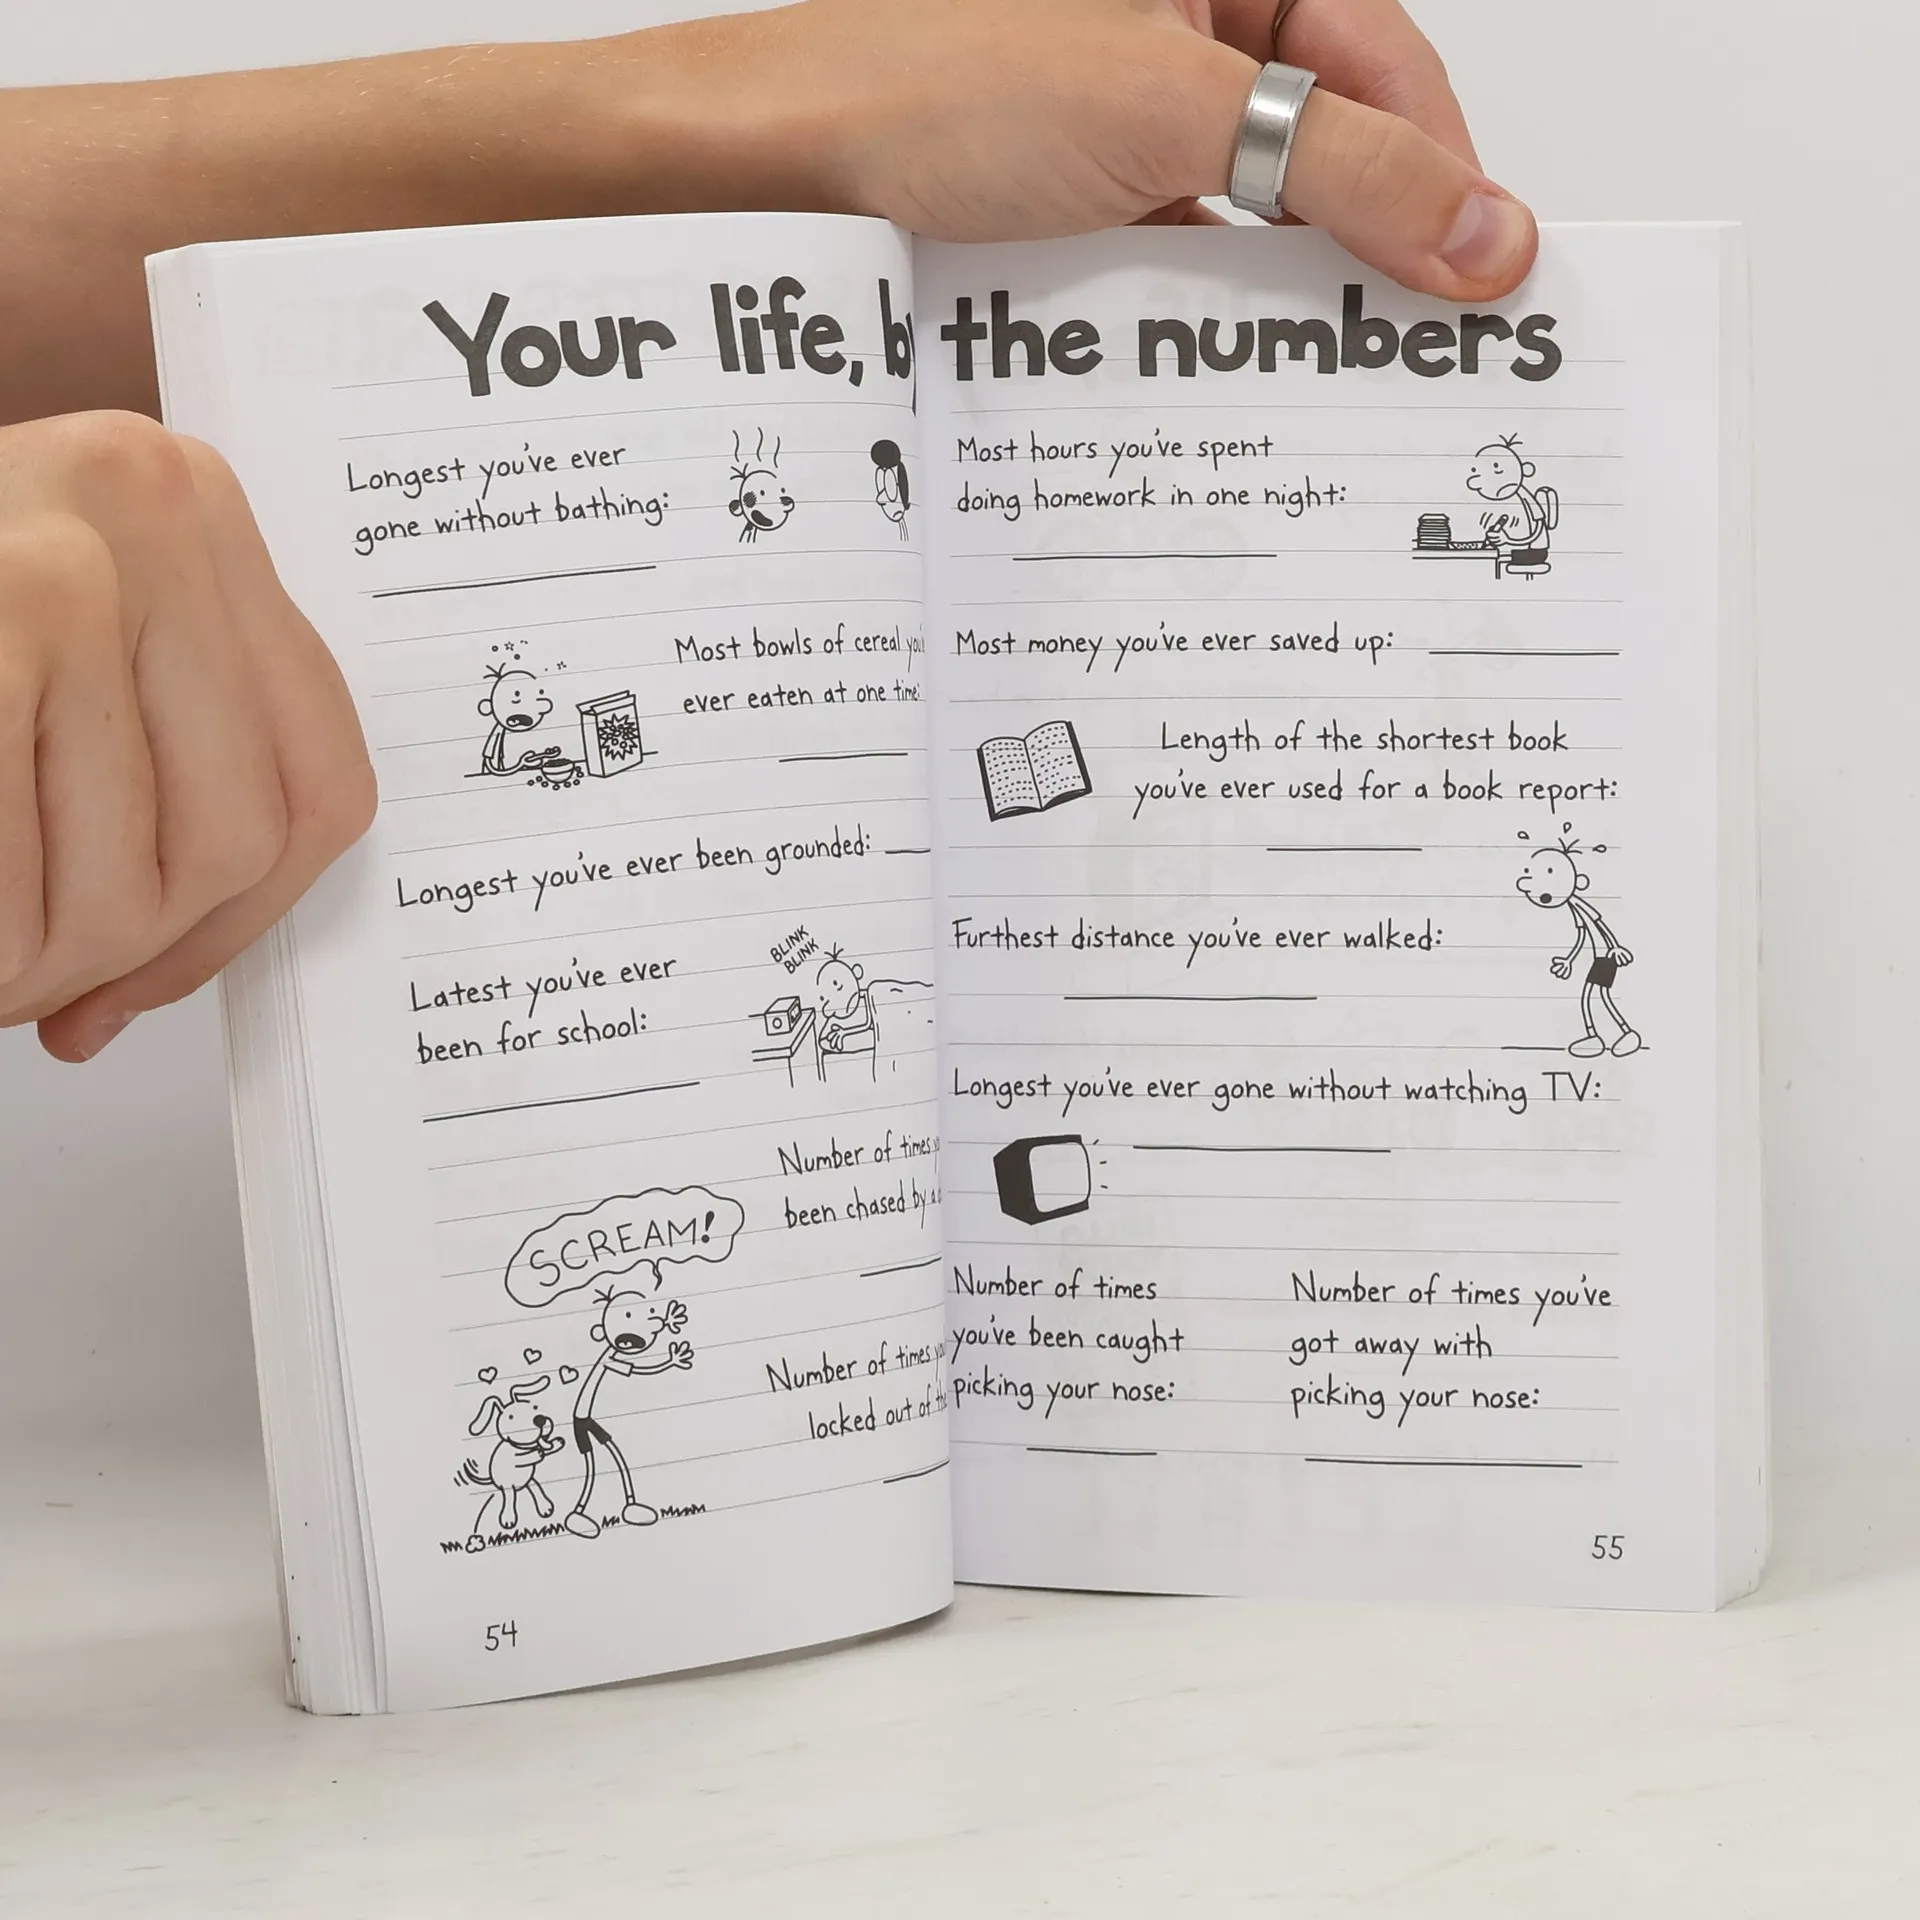 Your life, by the numbers
Longest you've ever
gone without bathing:
Most bowls of cereal
ever eaten at one time:
Longest you've ever been grounded:
Latest you've ever
been for school:
BLINK
BLINK
Number of times
been chased by a
SCREAM!
Number of times
locked out of
54
Most hours you've spent
doing homework in one night:
Most money you've ever saved up:
Length of the shortest book
you've ever used for a book report:
Furthest distance you've ever walked:
Longest you've ever gone without watching TV:
Number of times
you've been caught
picking your nose:
Number of times you've
got away with
picking your nose:
55